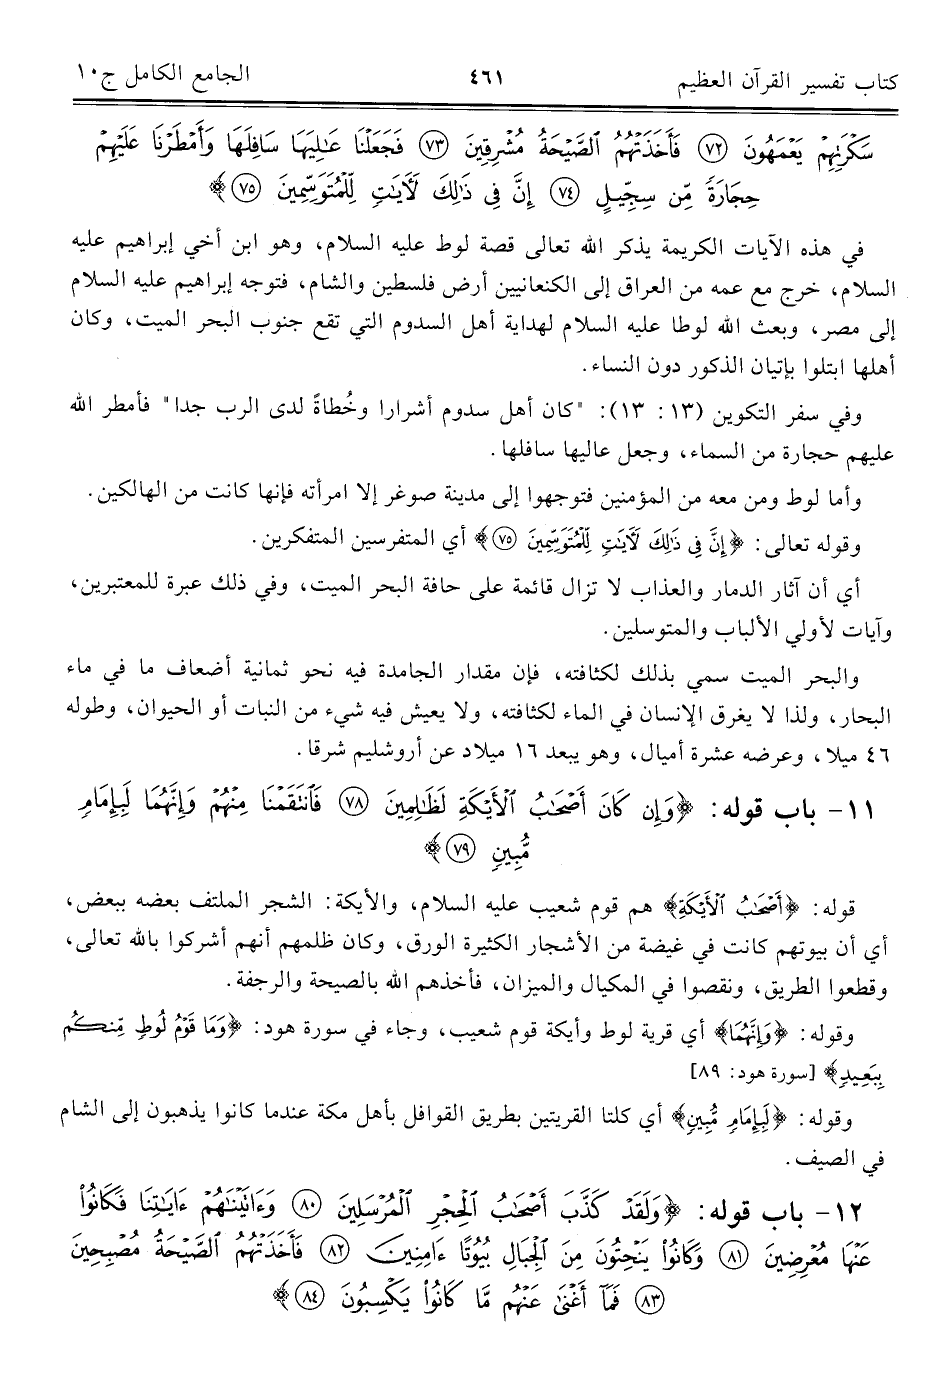 كتاب تفسير القرآن العظيم ٤٦١ الجامع الكامل ج١٠
سَكْرَتِهِمْ يَعْمَهُونَ ﴿٧٢﴾ فَأَخَذَتْهُمُ ٱلصَّيْحَةُ مُشْرِقِينَ ﴿٧٣﴾ فَجَعَلْنَا عَٰلِيَهَا سَافِلَهَا وَأَمْطَرْنَا عَلَيْهِمْ
حِجَارَةً مِّن سِجِّيلٍ ﴿٧٤﴾ إِنَّ فِى ذَٰلِكَ لَءَايَٰتٍ لِّلْمُتَوَسِّمِينَ ﴿٧٥﴾
في هذه الآيات الكريمة يذكر الله تعالى قصة لوط عليه السلام، وهو ابن أخي إبراهيم عليه
السلام، خرج مع عمه من العراق إلى الكنعانيين أرض فلسطين والشام، فتوجه إبراهيم عليه السلام
إلى مصر، وبعث الله لوطا عليه السلام لهداية أهل السدوم التي تقع جنوب البحر الميت، وكان
أهلها ابتلوا بإتيان الذكور دون النساء.
وفي سفر التكوين (١٣: ١٣): "كان أهل سدوم أشرارا وخُطاةً لدى الرب جدا" فأمطر الله
عليهم حجارة من السماء، وجعل عاليها سافلها.
وأما لوط ومن معه من المؤمنين فتوجهوا إلى مدينة صوغر إلا امرأته فإنها كانت من الهالكين.
وقوله تعالى: ﴿إِنَّ فِى ذَٰلِكَ لَءَايَٰتٍ لِّلْمُتَوَسِّمِينَ ٧٥﴾ أي المتفرسين المتفكرين.
أي أن آثار الدمار والعذاب لا تزال قائمة على حافة البحر الميت، وفي ذلك عبرة للمعتبرين،
وآيات لأولي الألباب والمتوسلين.
والبحر الميت سمي بذلك لكثافته، فإن مقدار الجامدة فيه نحو ثمانية أضعاف ما في ماء
البحار، ولذا لا يغرق الإنسان في الماء لكثافته، ولا يعيش فيه شيء من النبات أو الحيوان، وطوله
٤٦ ميلا، وعرضه عشرة أميال، وهو يبعد ١٦ ميلاد عن أروشليم شرقا.
١١- باب قوله: ﴿وَإِن كَانَ أَصْحَٰبُ ٱلْأَيْكَةِ لَظَٰلِمِينَ ٧٨ فَٱنتَقَمْنَا مِنْهُمْ وَإِنَّهُمَا لَبِإِمَامٍ
مُّبِينٍ ٧٩﴾
قوله: ﴿أَصْحَٰبُ ٱلْأَيْكَةِ﴾ هم قوم شعيب عليه السلام، والأيكة: الشجر الملتف بعضه ببعض،
أي أن بيوتهم كانت في غيضة من الأشجار الكثيرة الورق، وكان ظلمهم أنهم أشركوا بالله تعالى،
وقطعوا الطريق، ونقصوا في المكيال والميزان، فأخذهم الله بالصيحة والرجفة.
وقوله: ﴿وَإِنَّهُمَا﴾ أي قرية لوط وأيكة قوم شعيب، وجاء في سورة هود: ﴿وَمَا قَوْمُ لُوطٍ مِّنكُم
بِبَعِيدٍ﴾ [سورة هود: ٨٩]
وقوله: ﴿لَبِإِمَامٍ مُّبِينٍ﴾ أي كلتا القريتين بطريق القوافل بأهل مكة عندما كانوا يذهبون إلى الشام
في الصيف.
١٢- باب قوله: ﴿وَلَقَدْ كَذَّبَ أَصْحَٰبُ ٱلْحِجْرِ ٱلْمُرْسَلِينَ ٨٠ وَءَاتَيْنَٰهُمْ ءَايَٰتِنَا فَكَانُوا۟
عَنْهَا مُعْرِضِينَ ٨١ وَكَانُوا۟ يَنْحِتُونَ مِنَ ٱلْجِبَالِ بُيُوتًا ءَامِنِينَ ٨٢ فَأَخَذَتْهُمُ ٱلصَّيْحَةُ مُصْبِحِينَ
٨٣ فَمَآ أَغْنَىٰ عَنْهُم مَّا كَانُوا۟ يَكْسِبُونَ ٨٤﴾